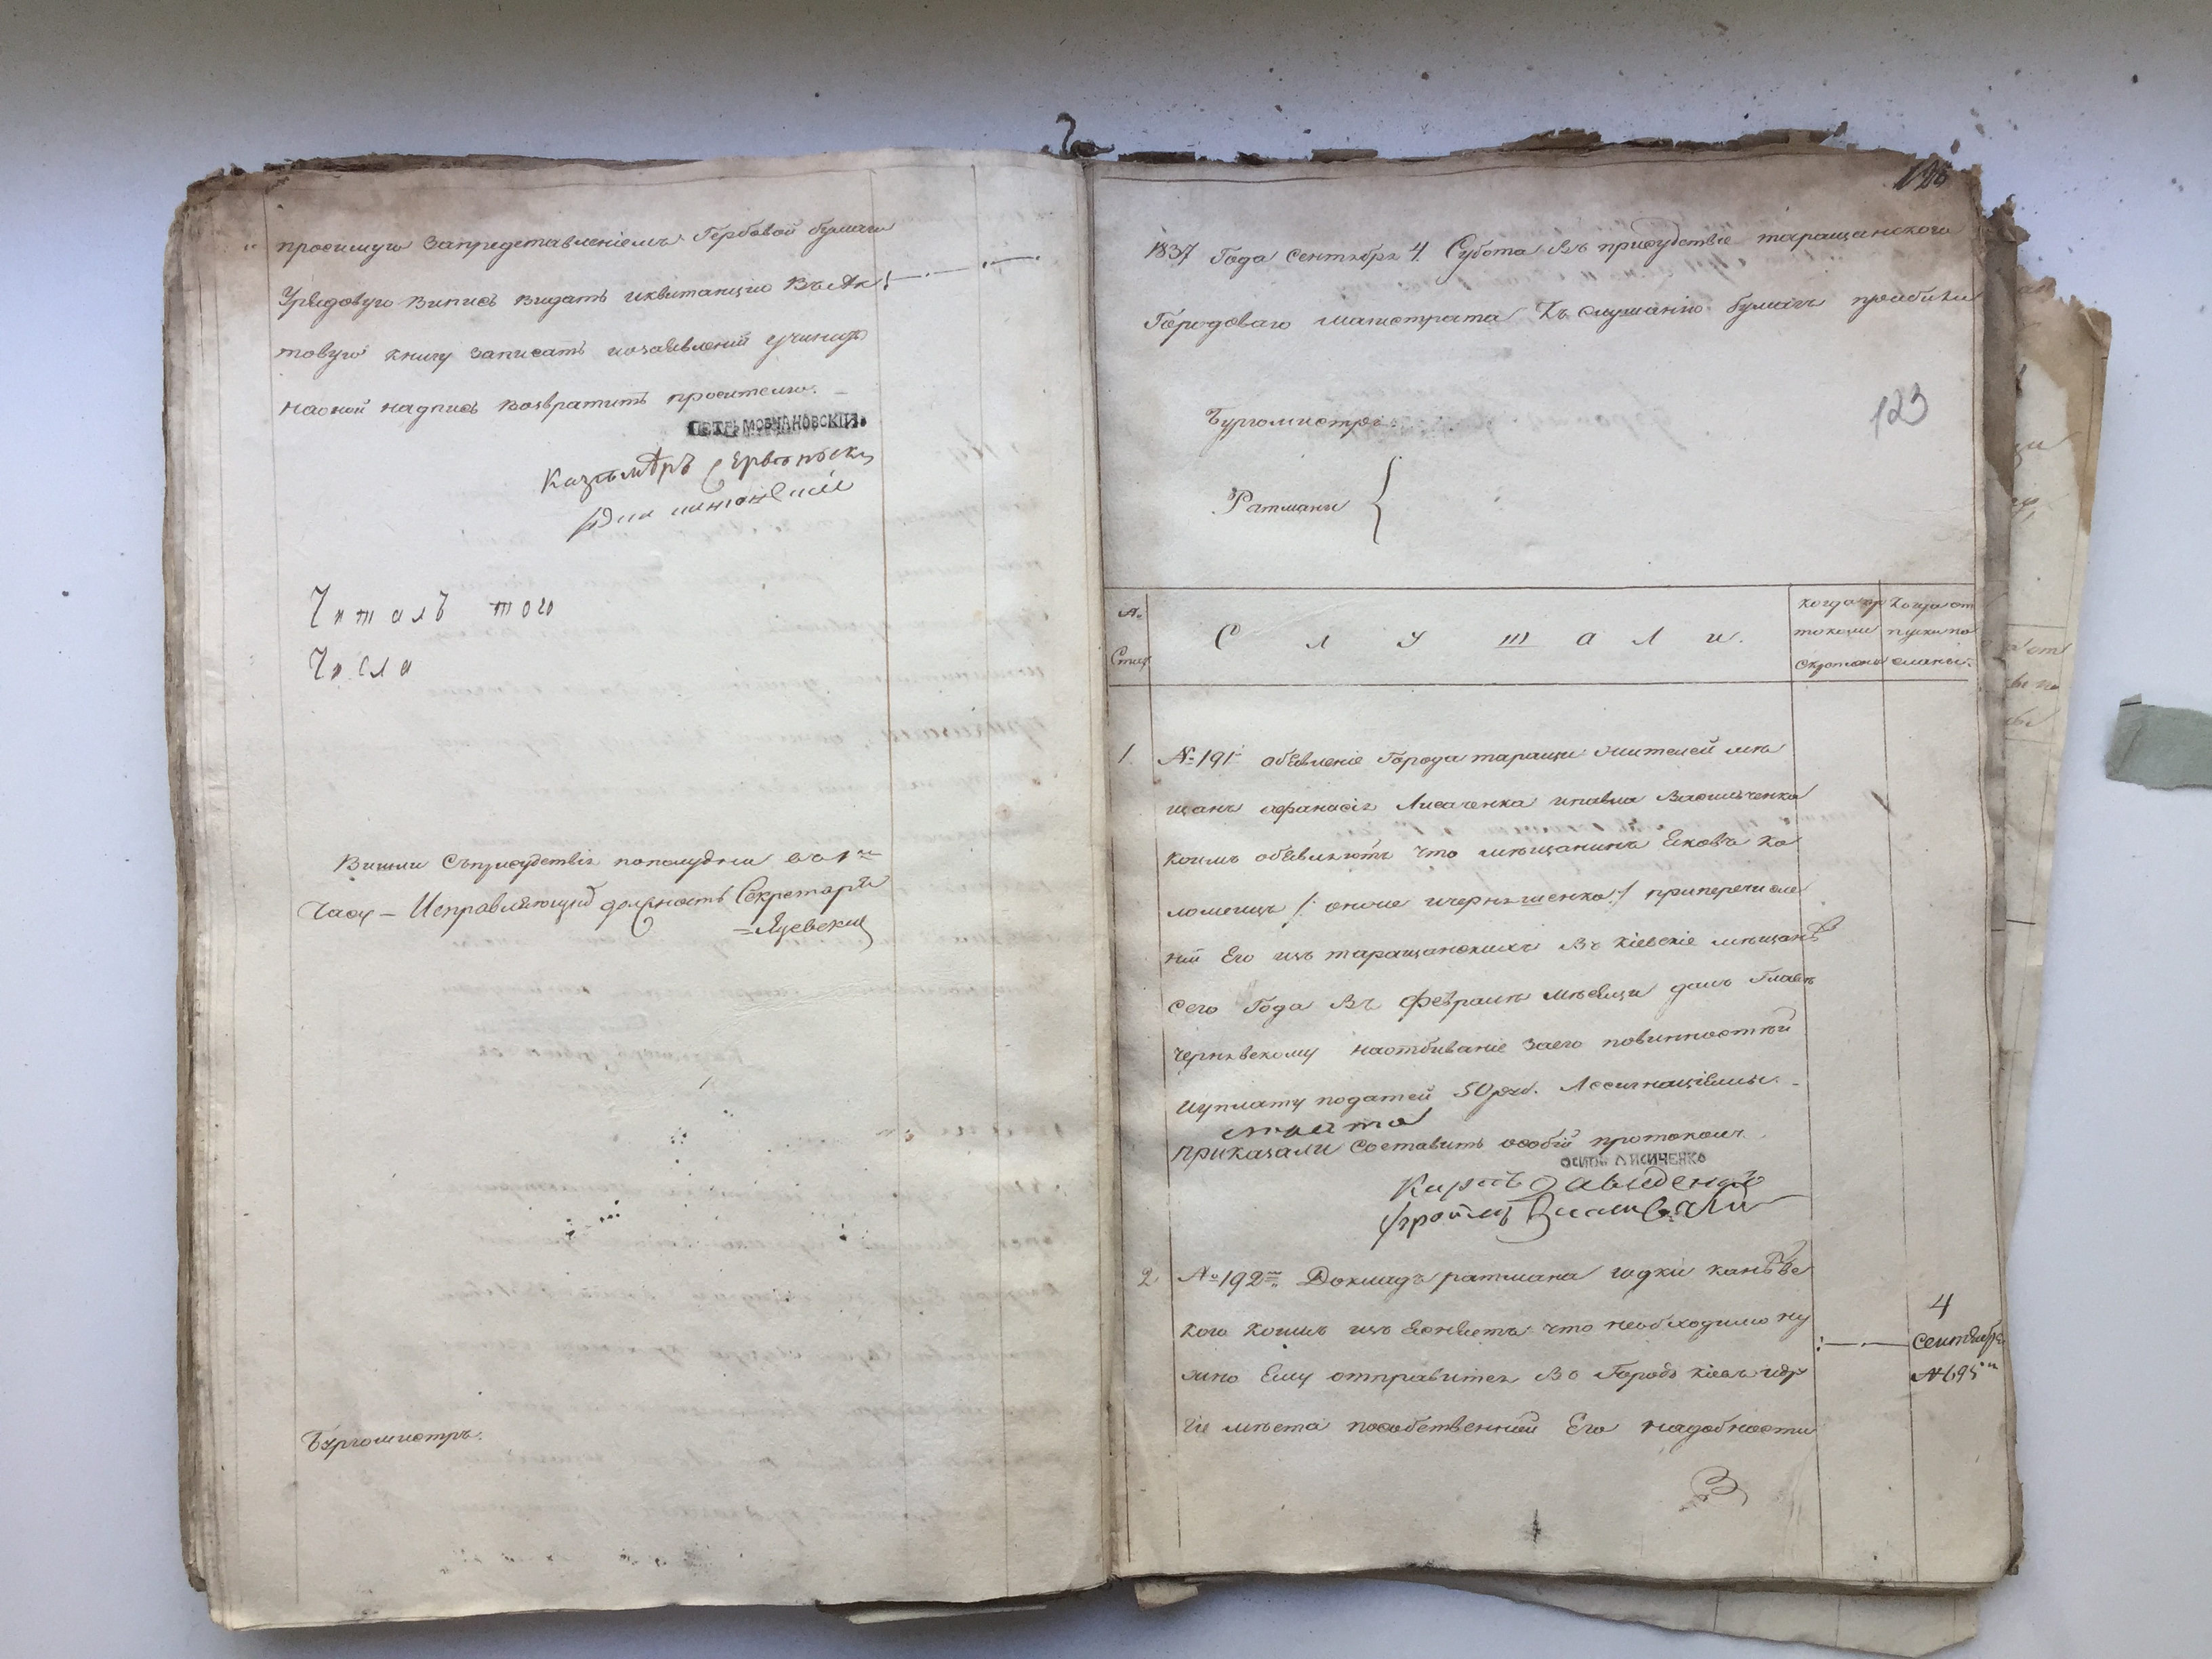 просимую запредставленіемъ Гербовой бумаги
Урядовую випись видать иквитанцію въ Ак
товую книгу записать иозаявленій учинивъ
наоной надпись возвратить просителю.
ПЕТРЪ МОВЧАНОВСКІЙ
Казъмѣръ
Читалъ того
Числа
Вишли съприсудствія пополудни во 1м
Часу — Исправляющій должность Секретаря
Яцевский
Бургомистръ.
126
1837 Года Сентября 4. Субота Въ присудствіе таращанского
Городоваго магистрата Къ слушанію бумагъ прибыли
123
Бургомистръ:
Ратмани
№
Стат
С л у ш а л и.
когда пр
токолы
скрепленъ
Когда от
пуски по
сланы.
1. №191й объявленіе Города таращи жителей мѣ
щанъ афанасія Лисаченка ипавла Василъченка
коимъ объявляютъ что мѣщанинъ Яковъ Ко
ломеицъ /: онже ичернышенко :/ приперечисле
ніи Его изъ таращанскихъ Въ кіевскіе мѣщанѣ
сего Года Въ Февралѣ мѣсяци далъ Главѣ
чернявскому наотбиваніе заего повинностѣй
иуплату податей 50 руб. Ассигнаціями. -
приказали составить особій протоколъ.
ОСИПЪ ЛИСИЧЕНКО
Карпъ Давиденко
2. №192м Докладъ ратмана годки канѣвс
кого коимъ изъясняетъ что необходимо ну
жно Ему отправится Во Городъ кіевъ идру
гіе мѣста пособственной Его надобности
4
Сентября
№695м